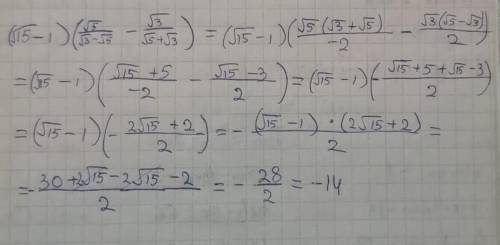 (√15-1)(√5/(√3-√5) - √3/(√5+√3)) = (√15-1)(√5(√3+√5)/-2 - √3(√5-√3)/2)
= (√15-1)((√15+5)/-2 - (√15-3)/2) = (√15-1)(-(√15+5+√15-3)/2)
= (√15-1)(-(2√15+2)/2) = -((√15-1)·(2√15+2))/2 =
= -(30+2√15-2√15-2)/2 = -28/2 = -14